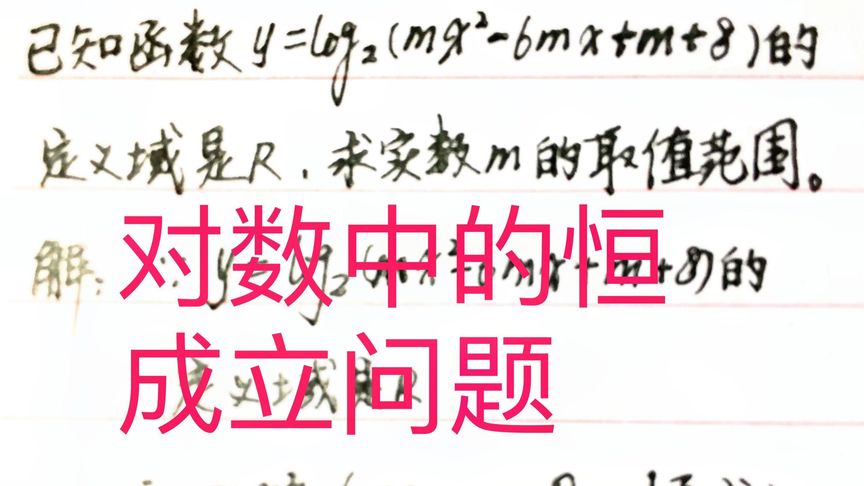 已知函数y=log₂(mx²-6mx+m+8)的
定义域是R，求实数m的取值范围。
解:∵y=log₂(mx²-6mx+m+8)的
定义域是R
对数中的恒
成立问题